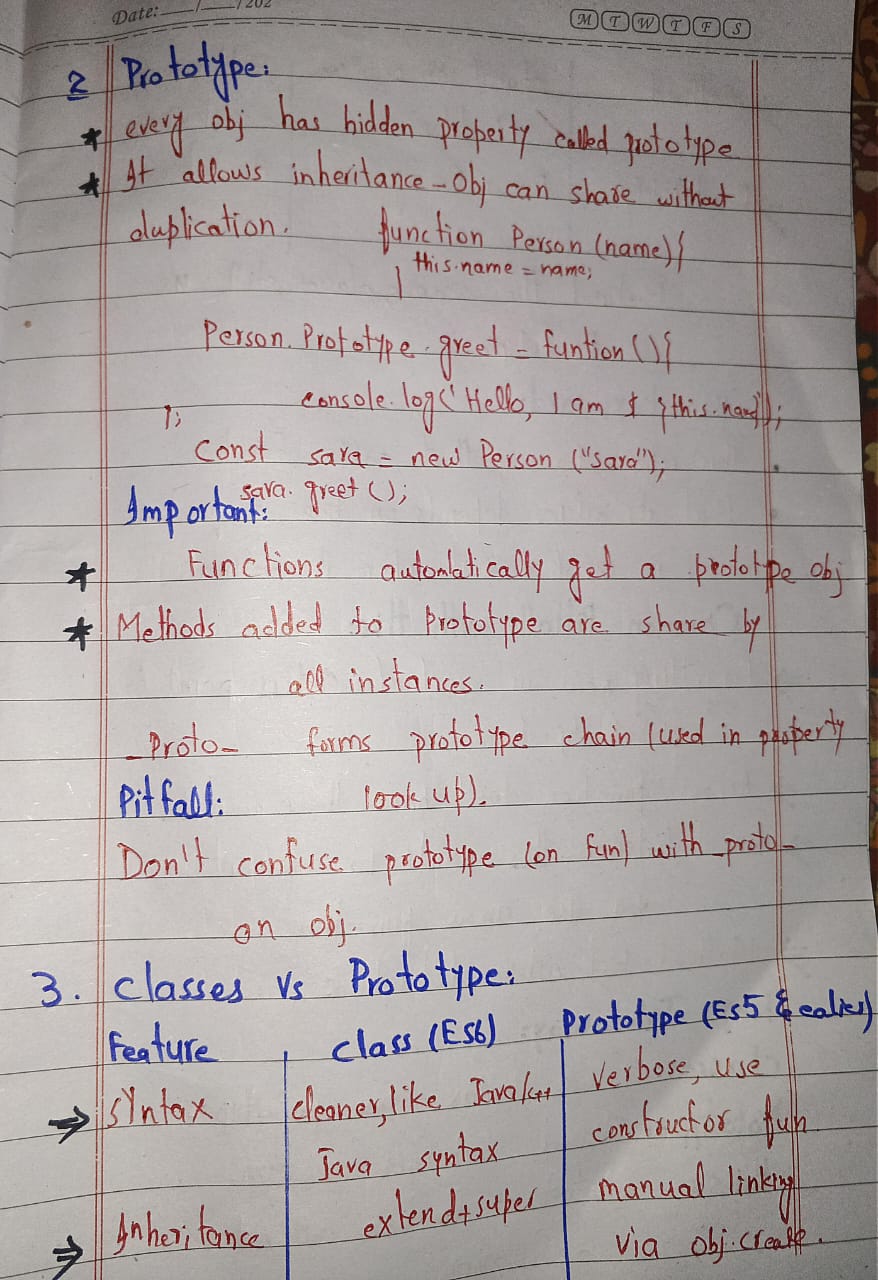 Date: / /202
M T W T F S
2 Prototype:
* every obj has hidden property called prototype
* It allows inheritance - Obj can share without
duplication. function Person (name){
this.name = name;
}
Person.Prototype.greet = funtion(){
console.log('Hello, I am $ {this.name}');
};
Const sara = new Person ("sara");
sara.greet();
Important:
* Functions automatically get a prototype obj
* Methods added to prototype are share by
all instances.
_Proto_ forms prototype chain (used in property
Pitfall: look up).
Don't confuse prototype (on fun) with _proto_
on obj.
3. Classes Vs Prototype:
Feature class (ES6) Prototype (Es5 & ealier)
⇒ Syntax cleaner, like Java/c++ verbose, use
Java syntax constructor fun
⇒ Inheritance extend+super manual linking
via obj.create.